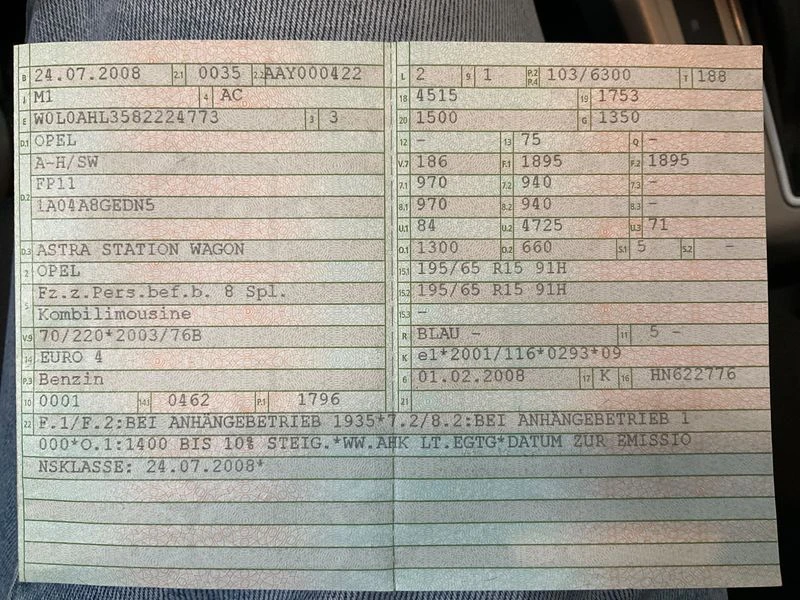 B 24.07.2008 2.1 0035 2.2 AAY000422
J M1 4 AC
E W0L0AHL3582224773 3 3
D.1 OPEL
D.2 A-H/SW
FP11
1A04A8GEDN5
D.3 ASTRA STATION WAGON
2 OPEL
5 Fz.z.Pers.bef.b. 8 Spl.
Kombilimousine
V.9 70/220*2003/76B
14 EURO 4
P.3 Benzin
10 0001 14.1 0462 P.1 1796
L 2 9 1 P.2 P.4 103/6300 T 188
18 4515 19 1753
20 1500 G 1350
12 - 13 75 Q -
V.7 186 F.1 1895 F.2 1895
7.1 970 7.2 940 7.3 -
8.1 970 8.2 940 8.3 -
U.1 84 U.2 4725 U.3 71
O.1 1300 O.2 660 S.1 5 S.2 -
15.1 195/65 R15 91H
15.2 195/65 R15 91H
15.3 -
R BLAU - 11 5 -
K e1*2001/116*0293*09
6 01.02.2008 17 K 16 HN622776
21
22 F.1/F.2:BEI ANHÄNGEBETRIEB 1935*7.2/8.2:BEI ANHÄNGEBETRIEB 1
000*O.1:1400 BIS 10% STEIG.*WW.AHK LT.EGTG*DATUM ZUR EMISSIO
NSKLASSE: 24.07.2008*